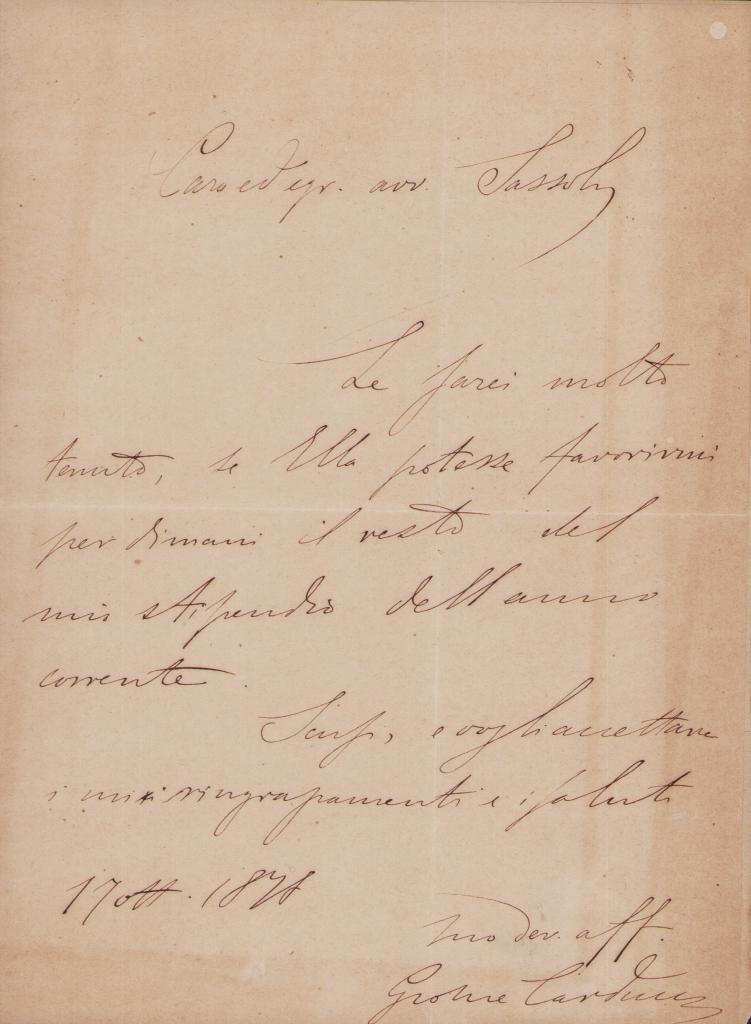 Caro ed egr. avv. Sassoli
Le sarei molto
tenuto, se Ella potesse favorirmi
per dimani il resto del
mio stipendio dell'anno
corrente.
Scusi, e voglia accettare
i miei ringraziamenti e i saluti
17 ott. 1876
suo dev. aff.
Giosue Carducci